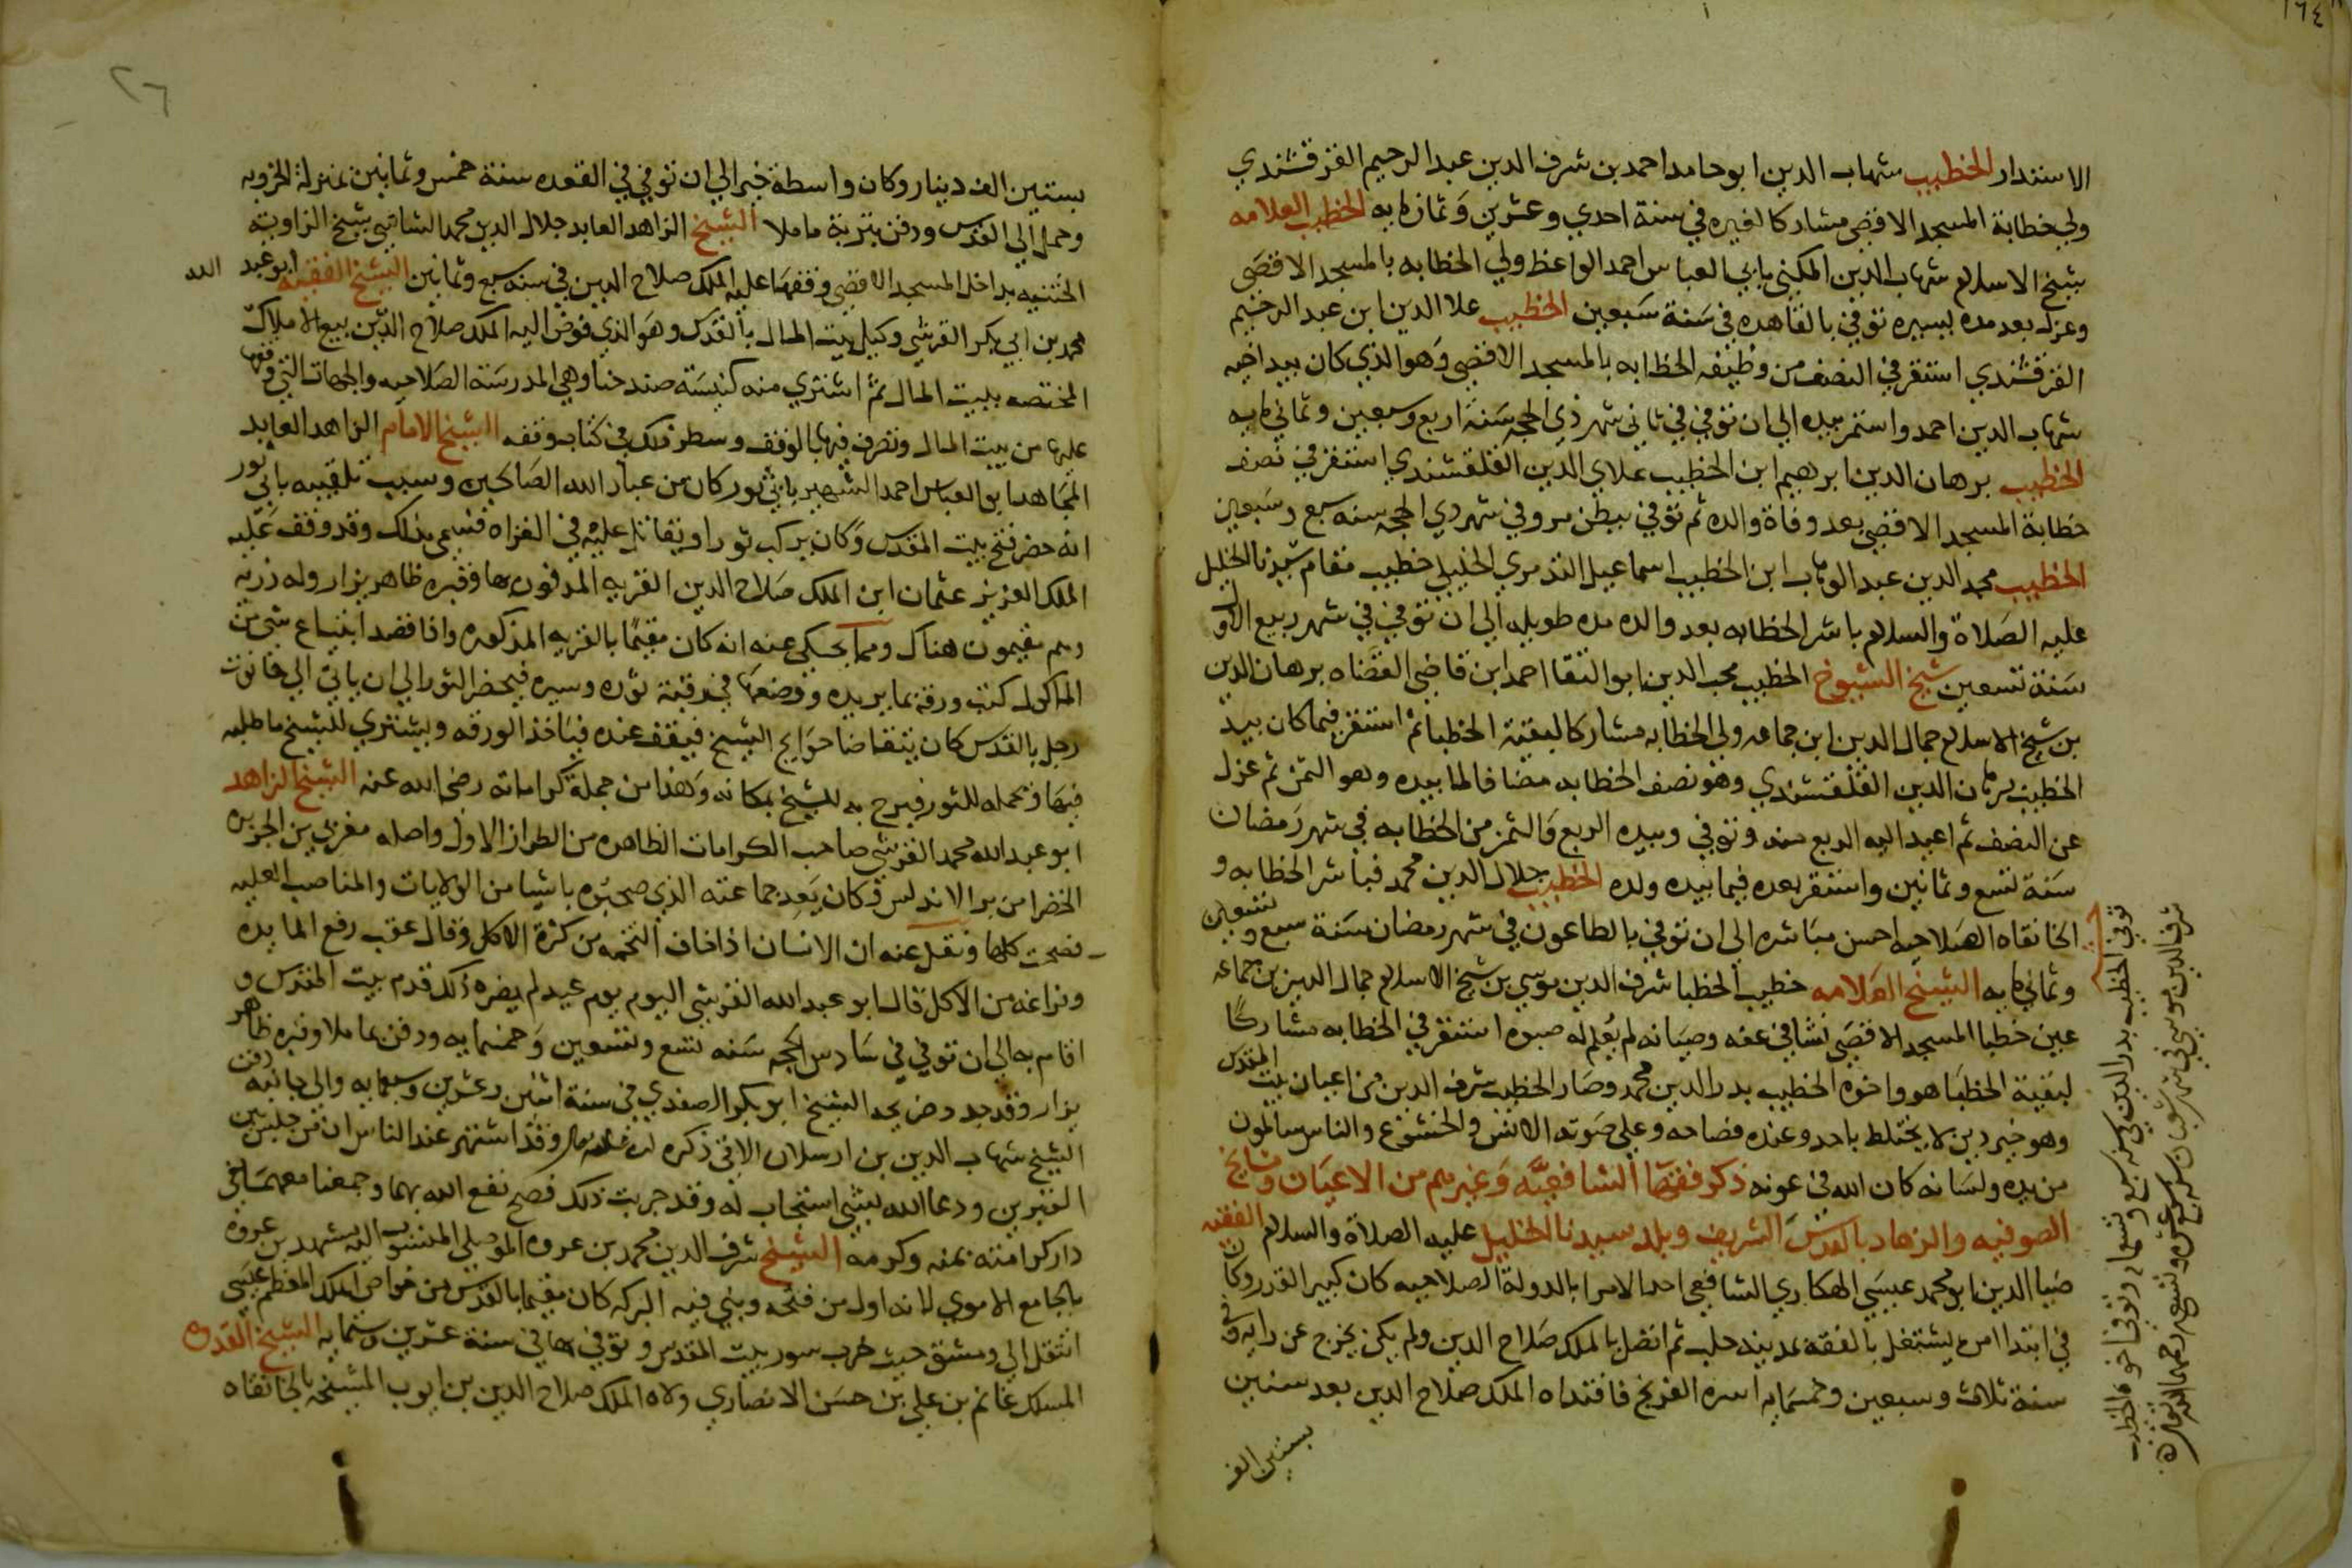 ١٦٤
الاستدار الخطيب شهاب الدين ابو حامد احمد بن شرف الدين عبد الرحيم القرقشندي
ولي خطابة المسجد الاقصى مشاركا لغيره في سنة احدي وعشرين وثمانمايه الخطيب العلامه
شيخ الاسلام شهاب الدين المكني بابي العباس احمد الواعظ ولي الخطابه بالمسجد الاقصى
وعزل بعد مده يسيره توفي بالقاهره في سنة سبعين الخطيب علا الدين ابن عبد الرحيم
القرقشندي استقر في النصف من وظيفه الخطابه بالمسجد الاقصى وهو الذي كان بيد اخيه
شهاب الدين احمد واستمر بيده الي ان توفي في ثاني شهر ذي الحجه سنة اربع وسبعين وثمانمايه
الخطيب برهان الدين ابرهيم ابن الخطيب علاي الدين القلقشندي استقر في نصف
خطابة المسجد الاقصى بعد وفاة والده ثم توفي ببطن مرو في شهر ذي الحجه سنه سبع وسبعين
الخطيب مجد الدين عبد الوهاب ابن الخطيب اسماعيل التدمري الخليلي خطيب مقام سيدنا الخليل
عليه الصلاة والسلام باشر الخطابه بعد والده مده طويله الي ان توفي في شهر ربيع الاول
سنة تسعين شيخ الشيوخ الخطيب محب الدين ابو البقا احمد ابن قاضي القضاه برهان الدين
بن شيخ الاسلام جمال الدين ابن جماعه ولي الخطابه مشاركا لبقية الخطبا ثم استقر فيما كان بيد
الخطيب برهان الدين القلقشندي وهو نصف الخطابه مضافا لما بيده وهو الثمن ثم عزل
عن النصف ثم اعيد اليه الربع منه وتوفي وبيده الربع والثمن من الخطابه في شهر رمضان
سنة تسع وثمانين واستقر بعده فيما بيده ولده الخطيب جلال الدين محمد فباشر الخطابه و
الخانقاه الصلاحيه احسن مباشره الي ان توفي بالطاعون في شهر رمضان سنة سبع وتسعين
وثمانمايه الشيخ العلامه خطيب الخطبا شرف الدين موسي بن شيخ الاسلام جمال الدين بن جماعه
عين خطبا المسجد الاقصى نشا في عفه وصيانه لم يُعلم له صبوه استقر في الخطابه مشاركًا
لبقية الخطبا هو واخوه الخطيب بدر الدين محمد وصار الخطيب شرف الدين من اعيان بيت المقدس
وهو خير دين لا يختلط باحد وعنده فصاحه وعلي صوته الانس والخشوع والناس سالمون
من يده ولسانه كان الله في عونه ذكر فقها الشافعيَّه وغيرهم من الاعيان ومشايخ
الصوفيه والزهاد بالقدس الشريف وبلد سيدنا الخليل عليه الصلاة والسلام الفقيه
ضيا الدين ابو محمد عيسي الهكاري الشافعي احد الامرا بالدولة الصلاحيه كان كبير القدر وكان
في ابتدا امره يشتغل بالفقه بمدينه حلب ثم اتصل بالملك صلاح الدين ولم يكن يخرج عن رايه وفي
سنة ثلاث وسبعين وخمسمايه اسره الفرنج فافتداه الملك صلاح الدين بعد سنين
بستين الف
توفي الخطيب بدر الدين في سنه سبع وتسعمايه وتوفي اخوه الخطيب
شرف الدين موسي في شهر شعبان سنه عشره وتسعمايه رحمهما الله تعالى
٢٦
بستين الف دينار وكان واسطة خير الي ان توفي في القعده سنة خمس وثمانين بمنزلة الخروبه
وحمل الي القدس ودفن بتربة ماملا الشيخ الزاهد العابد جلال الدين محمد الشاشي شيخ الزاوية
الختنيه بداخل المسجد الاقصى وقفها عليه الملك صلاح الدين في سنه سبع وثمانين الشيخ الفقيه ابو عبد الله
محمد بن ابي بكر القرشي وكيل بيت المال بالقدس وهو الذي فوض اليه الملك صلاح الدين بيع الاملاك
المختصه ببيت المال ثم اشتري منه كنيسة صند حنا وهي المدرسة الصلاحيه والجهات التي وقفها
عليها من بيت المال وتصرف فيها بالوقف وسطر ذلك في كتاب وقفه الشيخ الامام الزاهد العابد
المجاهد ابو العباس احمد الشهير بابي ثور كان من عباد الله الصالحين وسبب تلقيبه بابي ثور
انه حضر فتح بيت المقدس وكان يركب ثورا ويقاتل عليه في الغزاه فسمي بذلك وقد وقف عليه
الملك العزيز عثمان ابن الملك صلاح الدين القريه المدفون بها وقبره ظاهر يزار وله ذريه
وهم مقيمون هناك ومما يحكي عنه انه كان مقيمًا بالقريه المذكوره واذا قصد ابتياع شي من
الماكول كتب ورقه بما يريده ووضعها في رقبة ثوره وسيره فيحضر الثور الي ان ياتي الي حانوت
رجل بالقدس كان يتقاضا حوايج الشيخ فيقف عنده فياخذ الورقه ويشتري للشيخ ما طلبه
فيها ويحمله للثور فيرجع به للشيخ بمكانه وهذا من جملة كراماته رضي الله عنه الشيخ الزاهد
ابو عبد الله محمد القرشي صاحب الكرامات الظاهره من الطراز الاول واصله مغربي من الجزيره
الخضرا من بر الاندلس وكان يَعِد جماعته الذي صحبُوه باشيا من الولايات والمناصب العليه
فصحت كلها ونقل عنه ان الانسان اذا خاف التخمه من كثرة الاكل وقال عقب رفع المايده
وفراغه من الاكل قال ابو عبد الله القرشي اليوم يوم عيد لم يضره ذلك قدم بيت المقدس و
اقام به الي ان توفي في سادس الحجه سنه تسع وتسعين وخمسمايه ودفن بماملا وقبره ظاهر
يزار وقد جدد ضريحه الشيخ ابو بكر الصفدي في سنة اثنين وعشرين وسبعمايه والي جانبه دفن
الشيخ شهاب الدين بن ارسلان الاتي ذكره وقد اشتهر عند الناس ان من جلس بين
القبرين ودعا الله بشي استجاب له وقد جربت ذلك فصح نفع الله بهما وجمعنا معهما في
دار كرامته بمنه وكرمه الشيخ شرف الدين محمد بن عروه الموصلي المنسوب اليه مشهد بن عروه
بالجامع الاموي لانه اول من فتحه وبني فيه البركه كان مقيما بالقدس من خواص الملك المعظم عيسي
انتقل الي دمشق حيث خرب سور بيت المقدس وتوفي بها في سنة عشرين وستمايه الشيخ القدوه
المسلك غانم بن علي بن حسن الانصاري ولاه الملك صلاح الدين بن ايوب المشيخه بالخانقاه